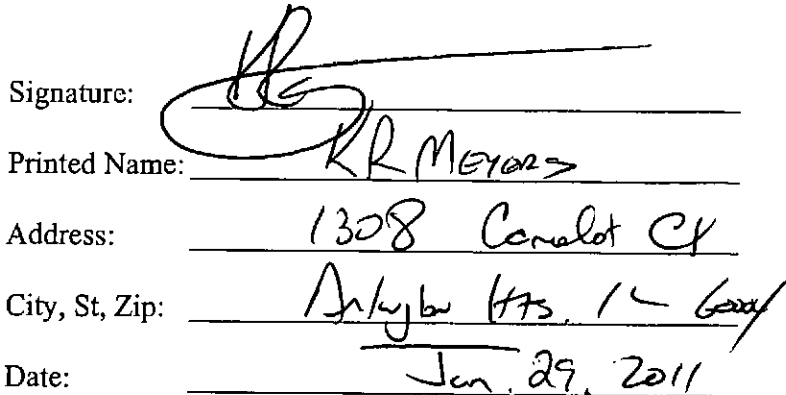 Signature:
Printed Name: KR MEYERS
Address: 1308 Camelot Ct
City, St, Zip: Arlington Hts. IL
Date: Jan. 29, 2011